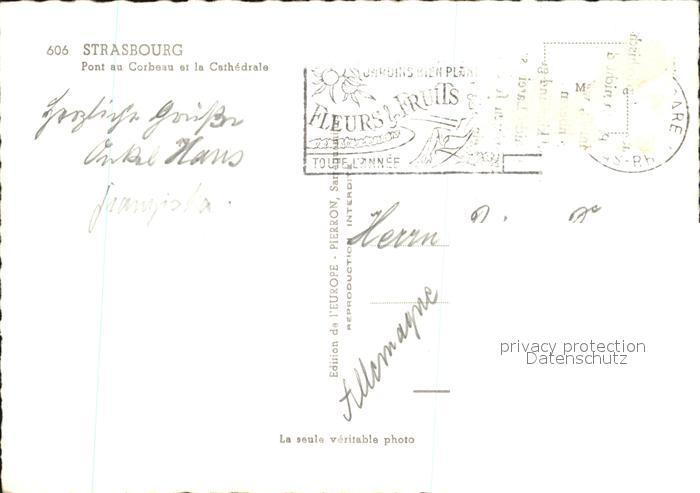 606 STRASBOURG
Pont au Corbeau et la Cathédrale
Herzliche Grüße
Onkel Hans
Franziska.
JARDINS BIEN PLANT
FLEURS & FRUITS
TOUTE L'ANNÉE
Edition de l'EUROPE - PIERRON,
REPRODUCTION INTERDI
Herrn
Allemagne
privacy protection
Datenschutz
La seule véritable photo